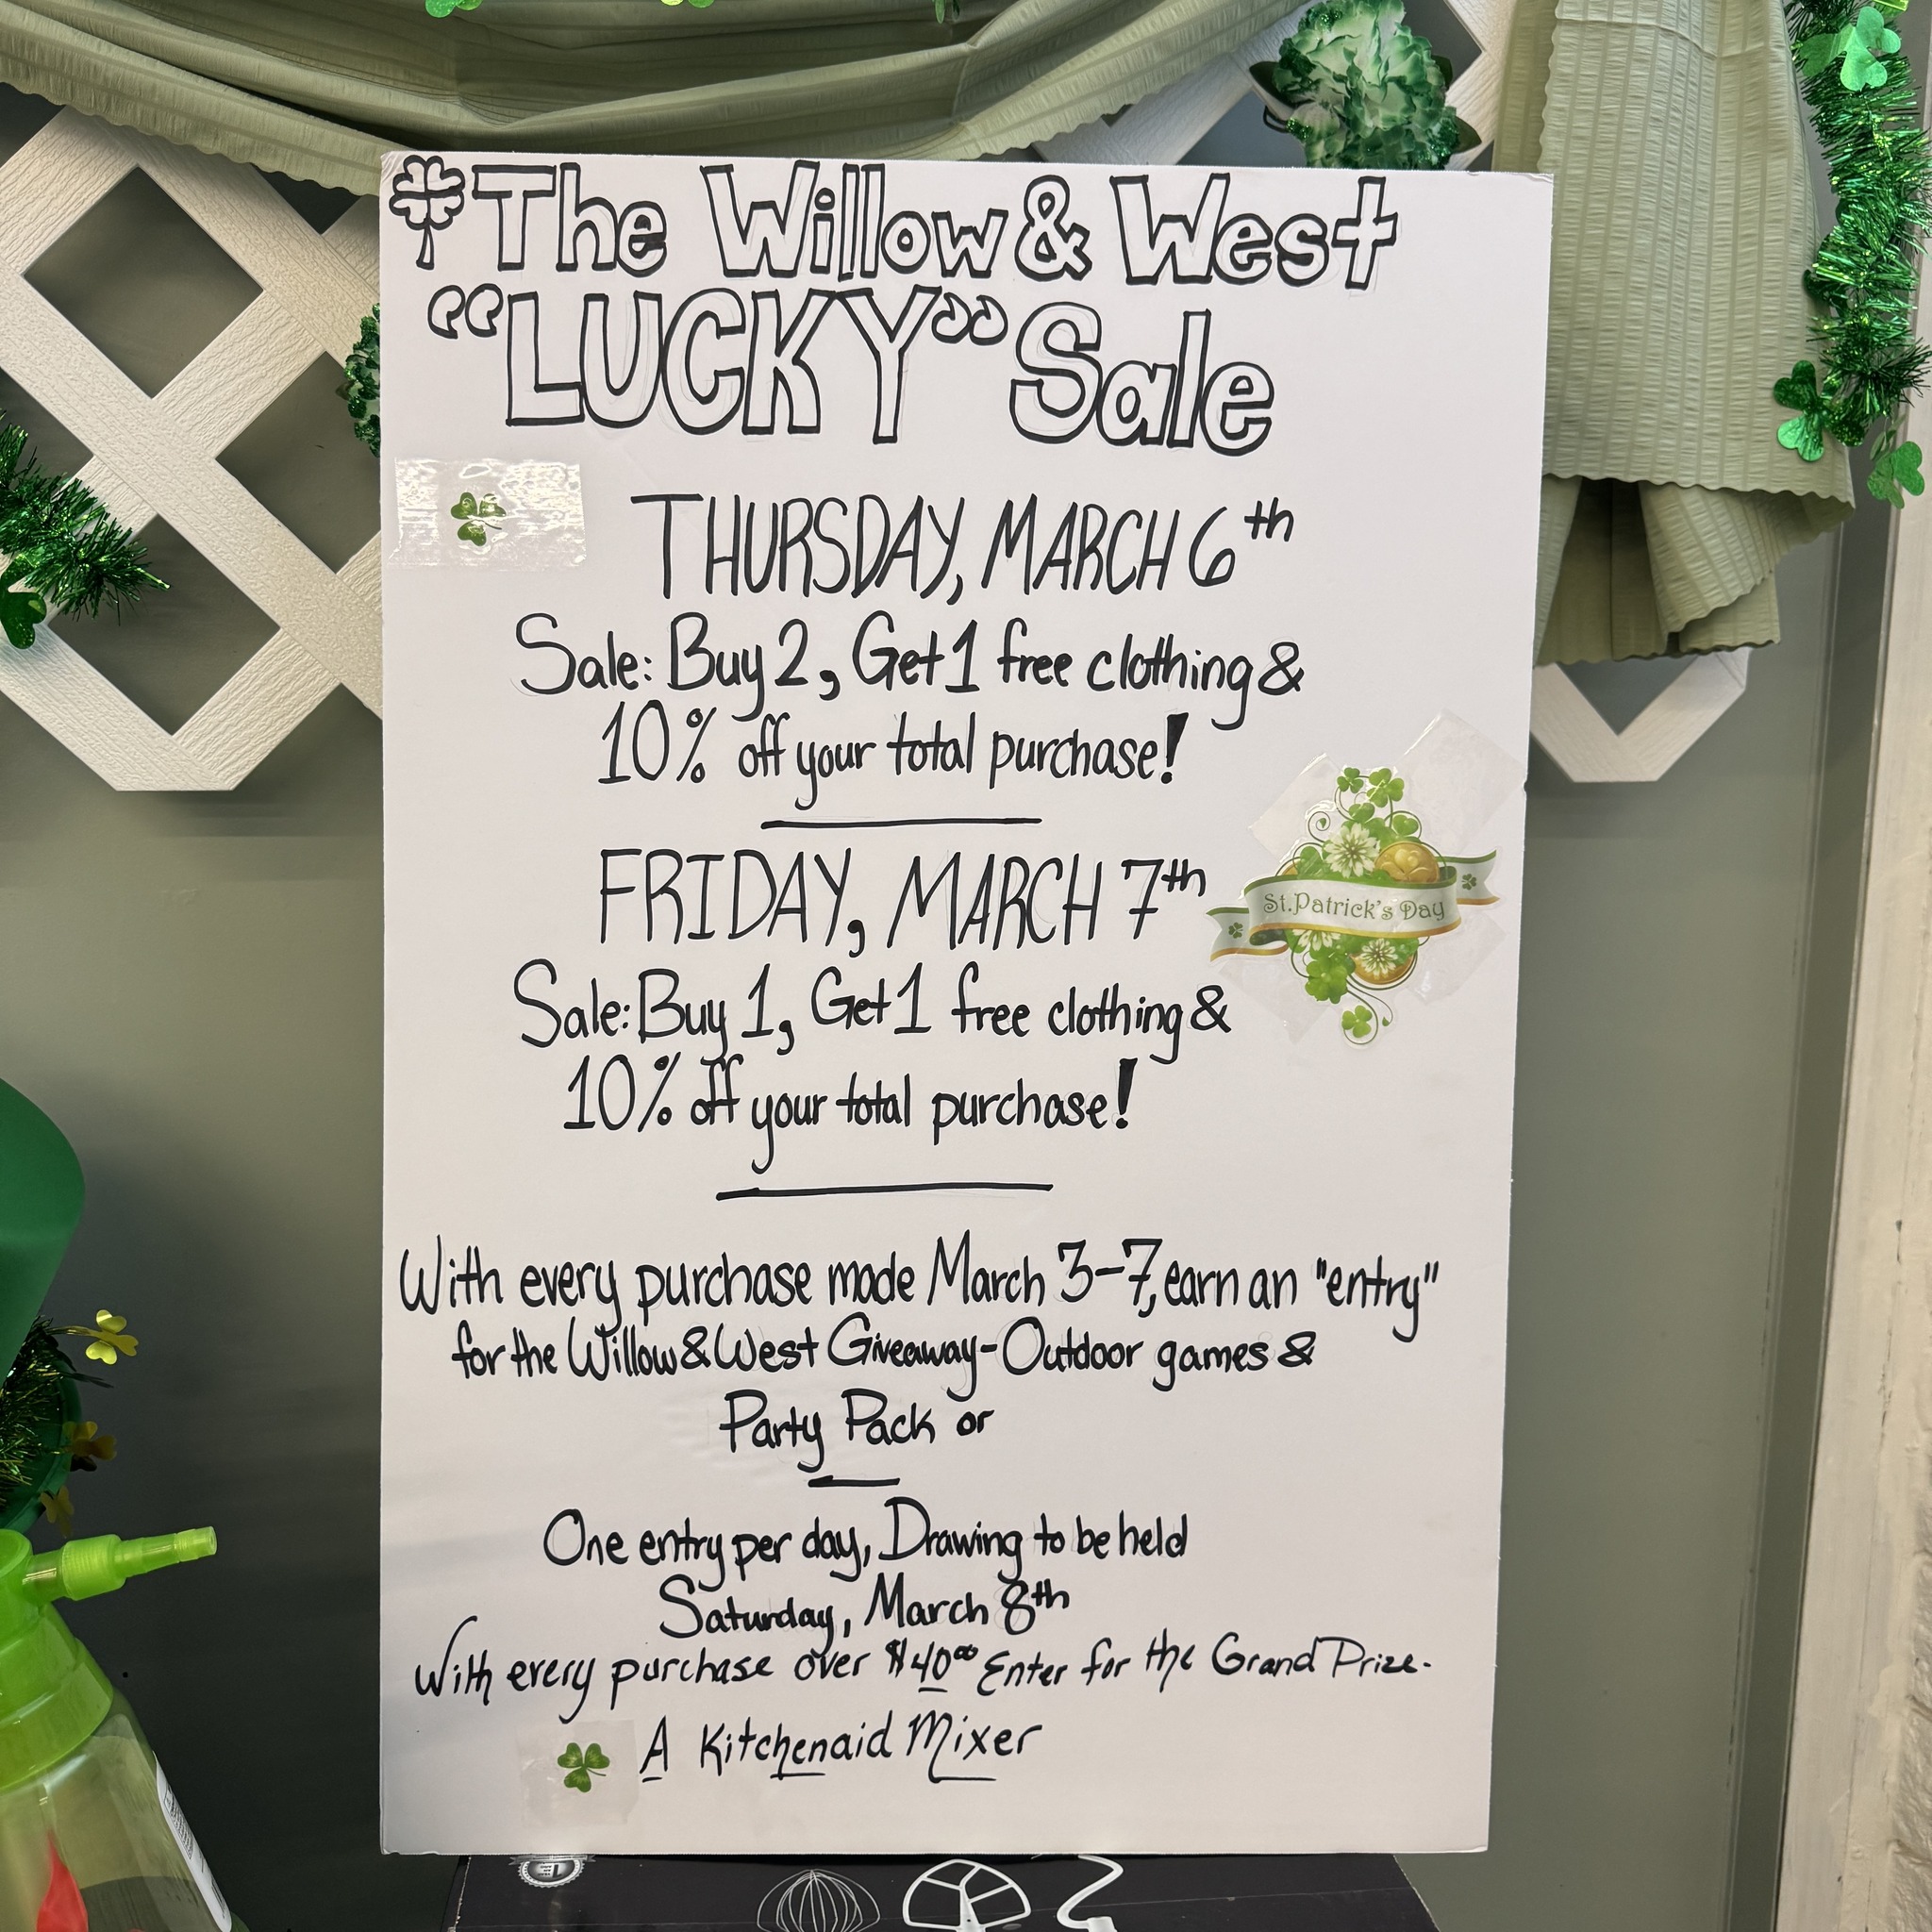 The Willow & West
“LUCKY” Sale
THURSDAY, MARCH 6th
Sale: Buy 2, Get 1 free clothing &
10% off your total purchase!
FRIDAY, MARCH 7th
St.Patrick's Day
Sale: Buy 1, Get 1 free clothing &
10% off your total purchase!
With every purchase made March 3-7, earn an "entry"
for the Willow & West Giveaway - Outdoor games &
Party Pack or
One entry per day, Drawing to be held
Saturday, March 8th
With every purchase over $40.00 Enter for the Grand Prize.
A Kitchenaid Mixer